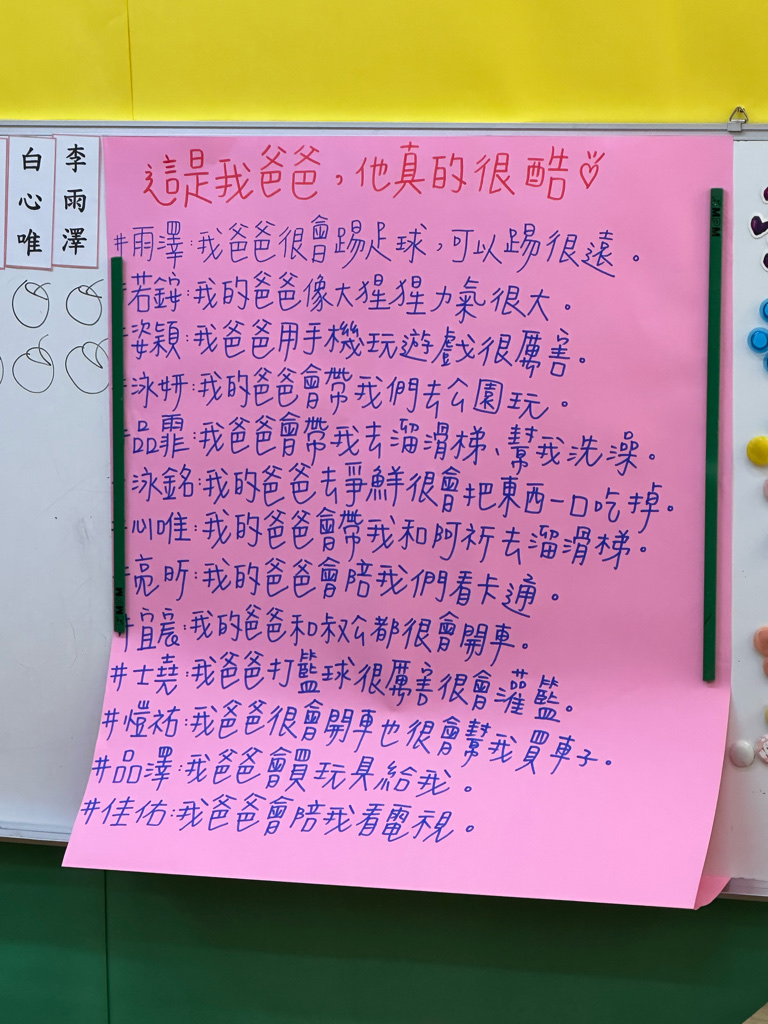 白心唯
李雨澤
這是我爸爸，他真的很酷
#雨澤:我爸爸很會踢足球，可以踢很遠。
#若銨:我的爸爸像大猩猩力氣很大。
#姿穎:我爸爸用手機玩遊戲很厲害。
#泳妍:我的爸爸會帶我們去公園玩。
#品霏:我爸爸會帶我去溜滑梯、幫我洗澡。
#泳銘:我的爸爸去爭鮮很會把東西一口吃掉。
#心唯:我的爸爸會帶我和阿祈去溜滑梯。
#亮昕:我的爸爸會陪我們看卡通。
#宜宸:我的爸爸和叔公都很會開車。
#士堯:我爸爸打籃球很厲害很會灌籃。
#愷祐:我爸爸很會開車也很會幫我買車子。
#品澤:我爸爸會買玩具給我。
#佳佑:我爸爸會陪我看電視。